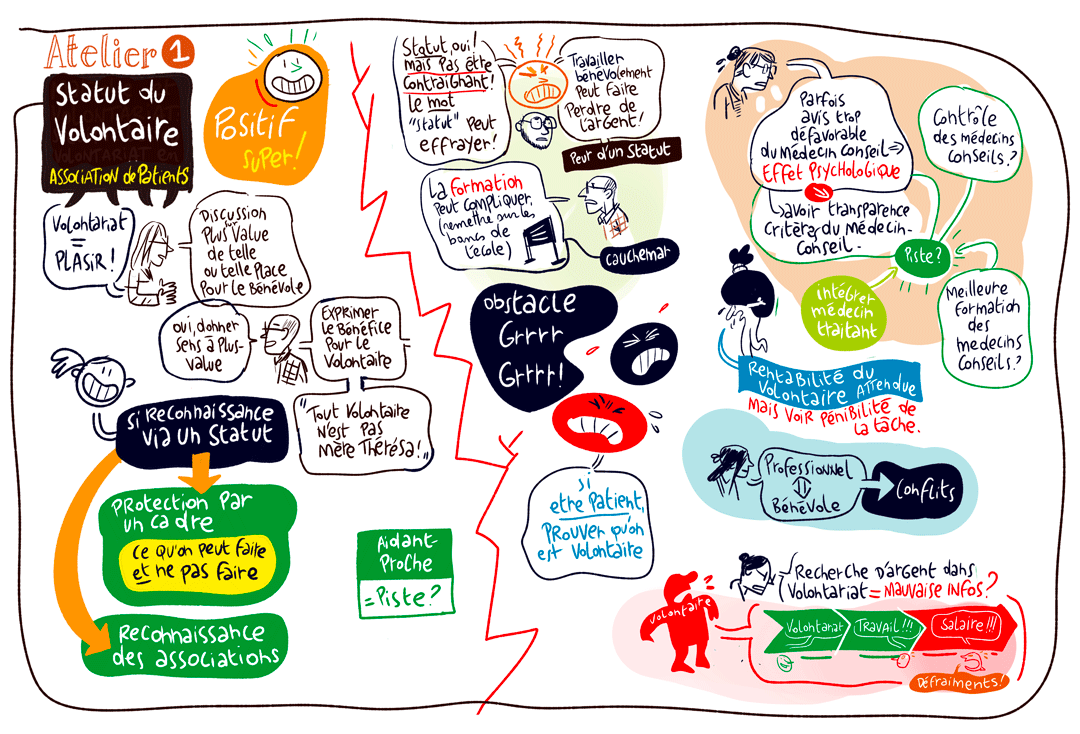 Atelier 1
Statut du
Volontaire
VOLONTARIAT EN
ASSOCIATION de PATIENTS
Positif
super!
Volontariat
=
PLASIR!
Discussion
sur
Plus Value
de telle
ou telle Place
Pour le Bénévole
oui, donner
sens à Plus-
value
Exprimer
le Bénéfice
Pour le
Volontaire
"Tout Volontaire
n'est pas
Mère Thérésa!"
si Reconnaissance
via un Statut
Protection par
un cadre
ce qu'on peut faire
et ne pas faire
Reconnaissance
des associations
Aidant-
Proche
= Piste?
Statut, oui!
mais pas être
contraignant!
le mot
"statut" peut
effrayer!
Travailler
bénévolement
Peut faire
Perdre de
l'argent!
Peur d'un Statut
La Formation
Peut compliquer
(remettre sur les
bancs de
l'école)
cauchemar
obstacle
Grrrr
Grrrr!
si
etre Patient,
Prouver qu'on
est Volontaire
Parfois
avis trop
défavorable
du Médecin Conseil ⇒
Effet Psychologique
↳avoir transparence
critères du Médecin-
Conseil -
Contrôle
des médecins
conseils?
Piste?
intégrer
médecin
traitant
Meilleure
Formation
des
medecins
Conseils?
Rentabilité du
Volontaire Attendue
Mais voir Pénibilité de
la tâche.
Professionnel
⇕
Bénévole
Conflits
Recherche d'argent dans
Volontariat = Mauvaise infos?
Volontaire
Volontariat
Travail!!!
Salaire!!!
Défraiments!